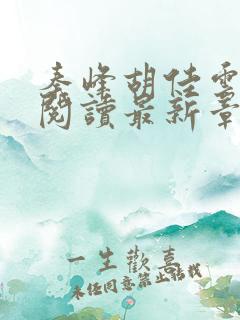 秦峰胡佳雲
閱讀最新章
一生歡喜
未经同意禁止搭找